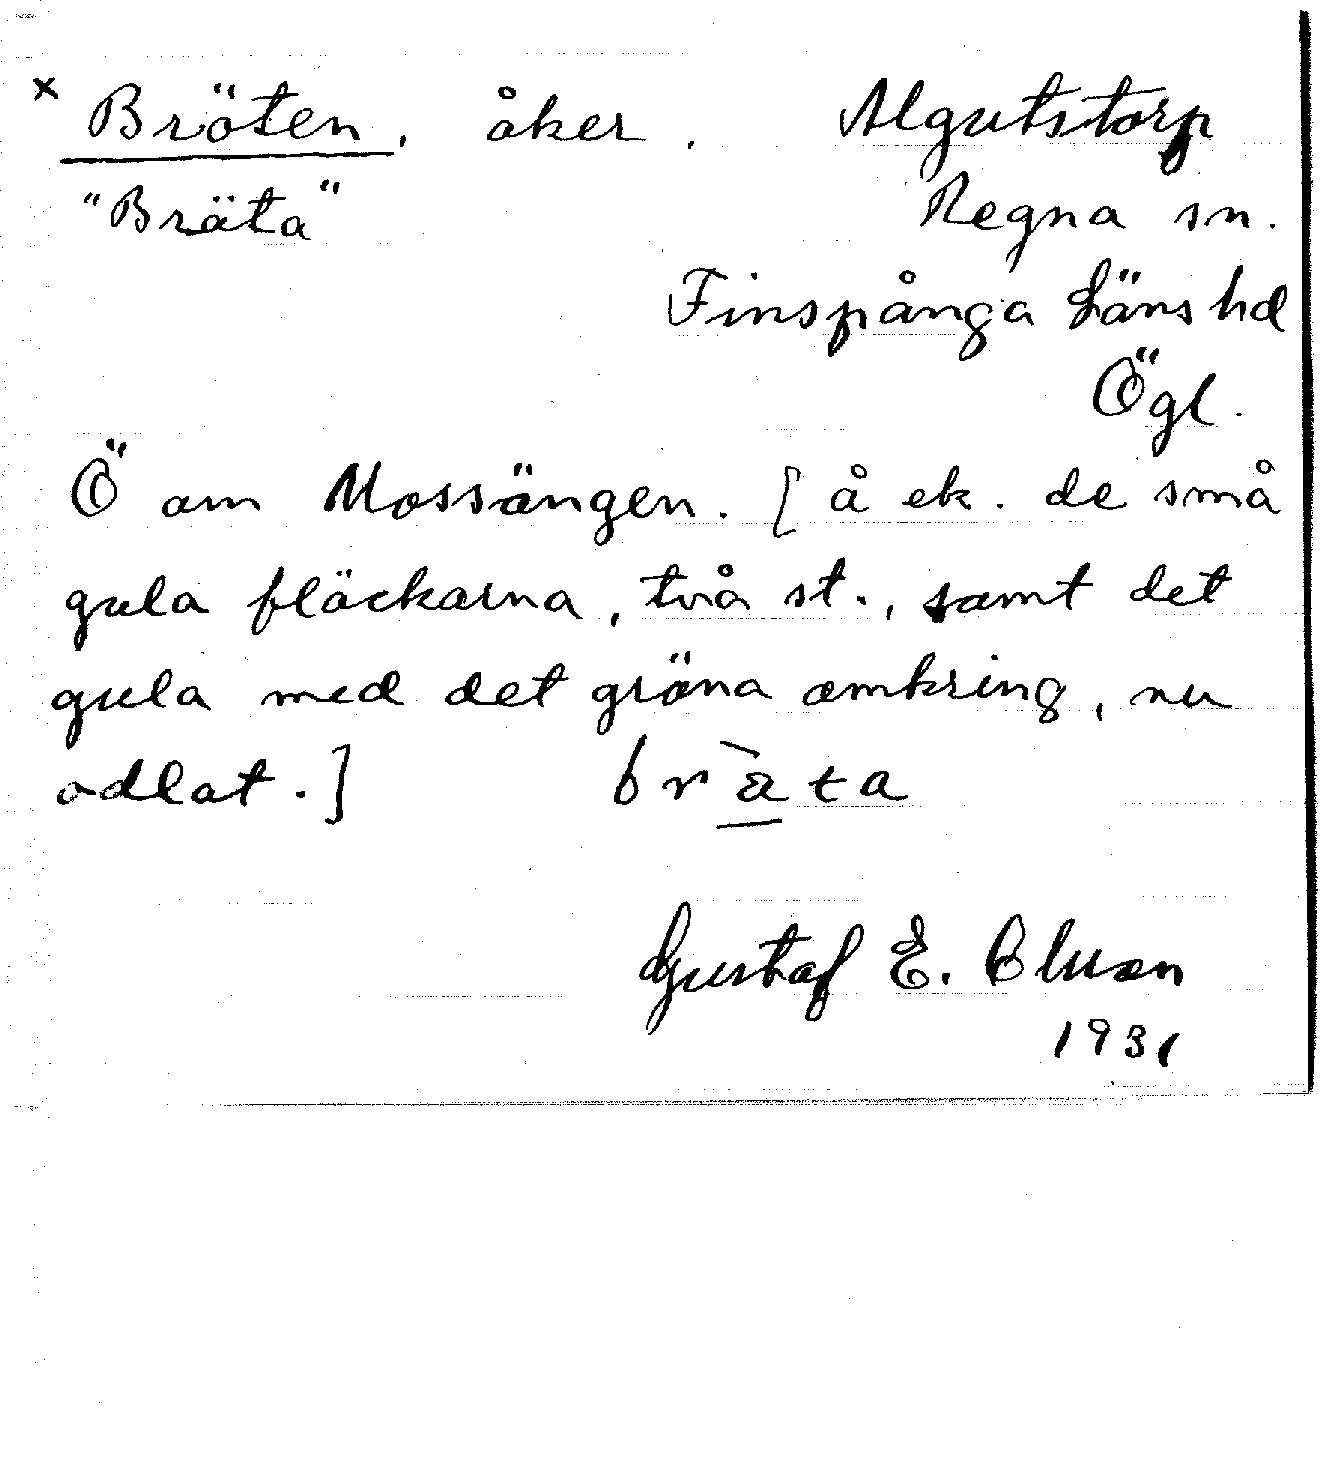 x Bröten, åker. Algutstorp
"Bräta" Regna sn.
Finspånga läns hd
Ögl.
Ö om Mossängen. [å ek. de små
gula fläckarna, två st., samt det
gula med det gröna omkring, nu
odlat.] bràta
Gustaf E.
1931